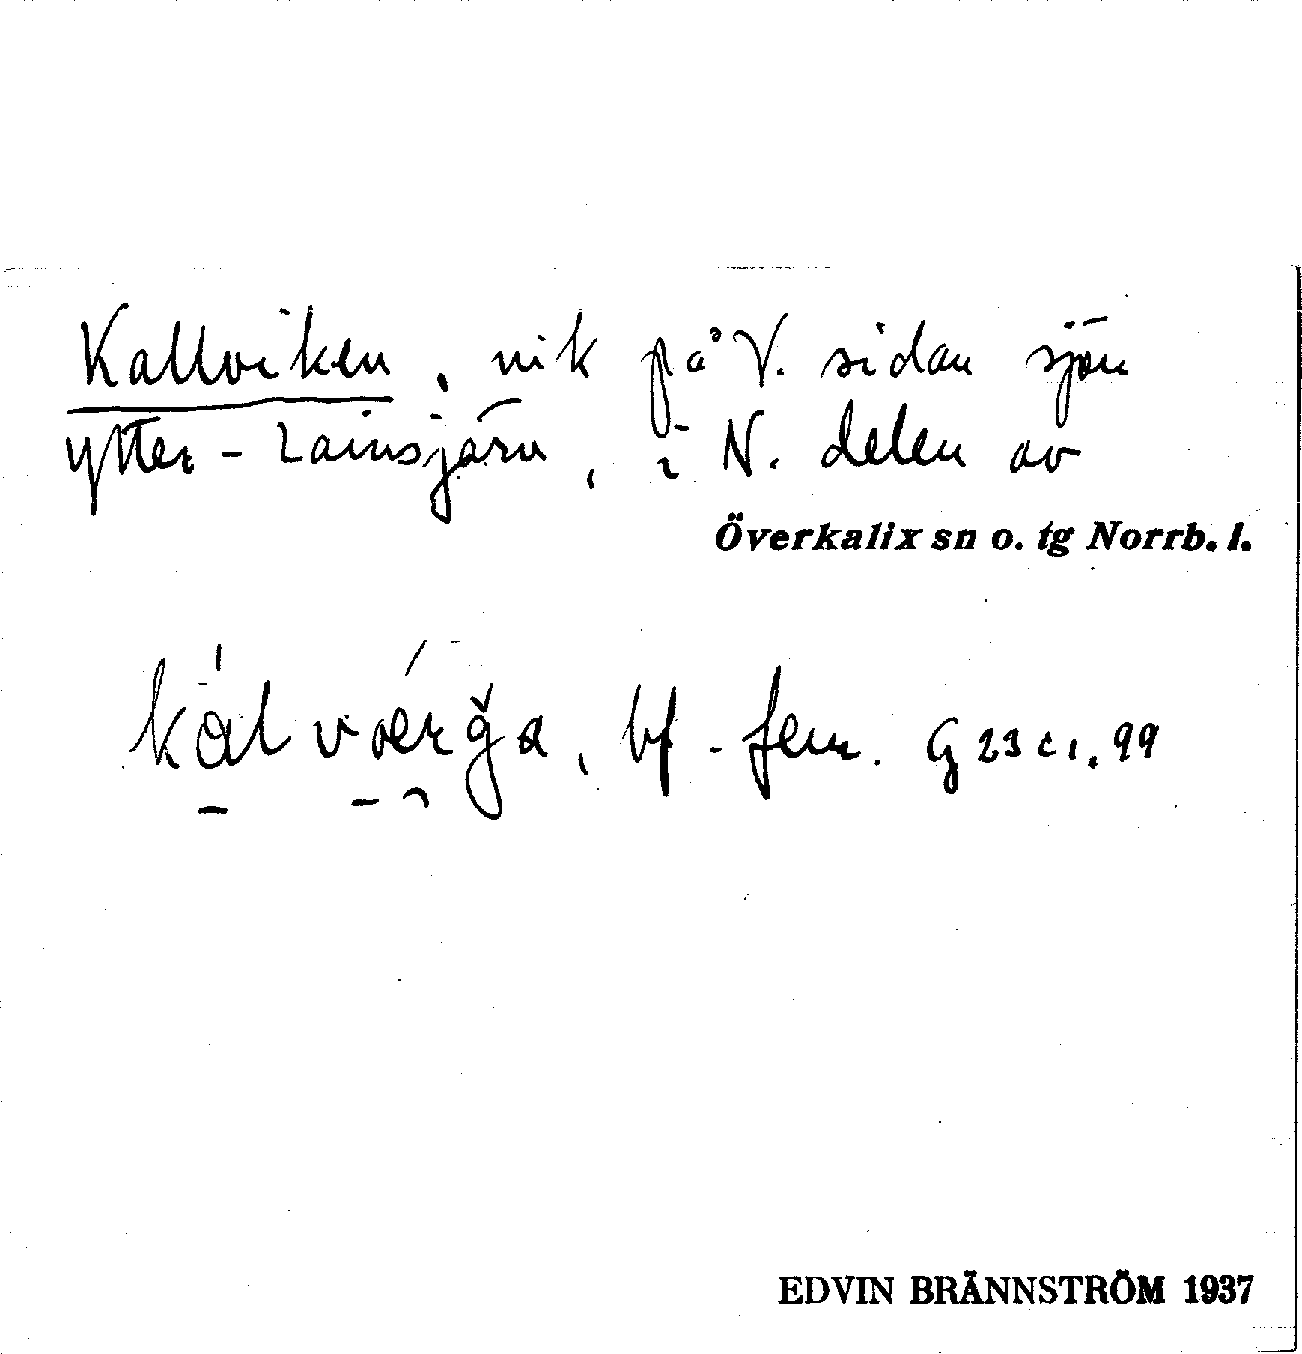 Kallviken, vik på V. sidan sjön
Ytter-Lainsjärv, i N. delen av
Överkalix sn o. tg Norrb. l.
bf. fem. G 23 c 1. 99
EDVIN BRÄNNSTRÖM 1937